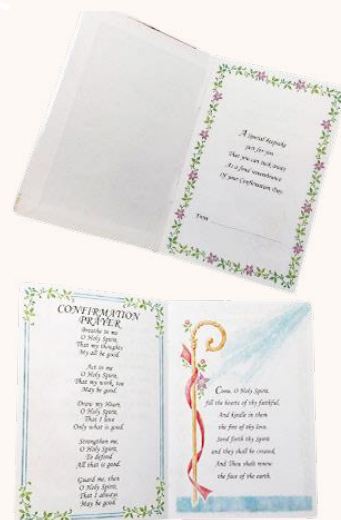 A special keepsake
just for you
That you can tuck away
As a fond remembrance
Of your Confirmation Day.
From
CONFIRMATION
PRAYER
Breathe in me
O Holy Spirit,
That my thoughts
My all be good.
Act in me
O Holy Spirit,
That my work, too
May be good.
Draw my Heart,
O Holy Spirit,
That I love
Only what is good.
Strengthen me,
O Holy Spirit,
To defend
All that is good.
Guard me, then
O Holy Spirit,
That I always
May be good.
Come, O Holy Spirit,
fill the hearts of thy faithful,
And kindle in them
the fire of thy love.
Send forth thy Spirit
and they shall be created,
And Thou shalt renew
the face of the earth.